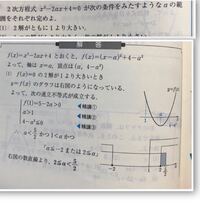 2次方程式 x²-2ax+4=0 が次の条件をみたすような a の範
囲をそれぞれ定めよ．
(1) 2解がともに1より大きい．
解答
f(x)=x²-2ax+4 とおくと，f(x)=(x-a)²+4-a²
よって，軸は x=a，頂点は (a, 4-a²)
(1) f(x)=0 の2解が1より大きいとき
y=f(x) のグラフは右図のようになる．
よって，次の連立不等式が成立する．
f(1)=5-2a>0
a>1
4-a²≦0
a<5/2 かつ 1<a かつ
「a≦-2 または 2≦a」
右図の数直線より，2≦a<5/2